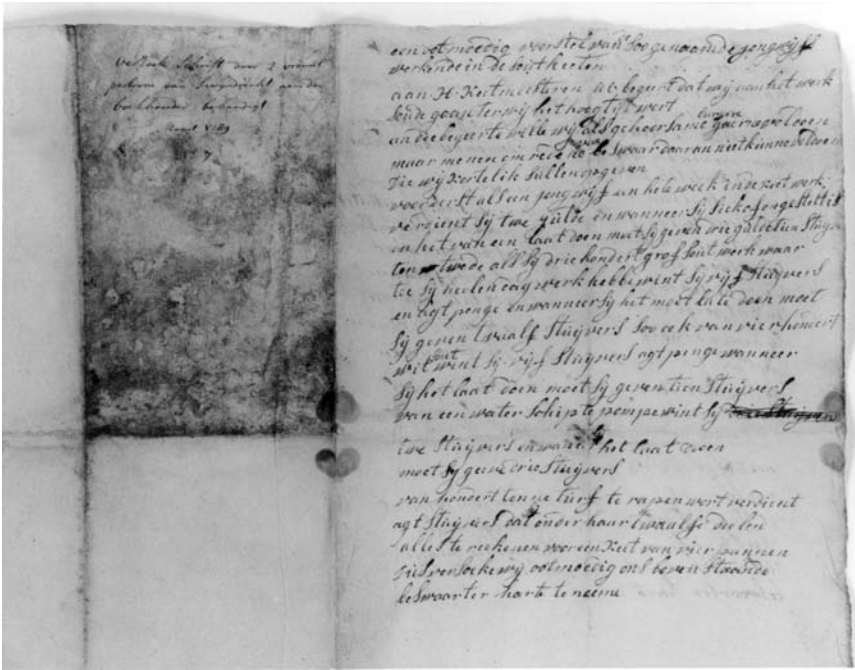 Verzoek Schrift door 2 vrouws
persoonen van Zwijndrecht aan den
boekhouder behandigt
1789
een ootmoedig voorstel van soo genaamde jongwijfs
werkende in de soutkeeten
aan H. Keetmeesteren ub begeert dat wij aan het werk
soude gaan terwijl het hoog tijt wert
an die begeerte wille wij als gehoorsame gaerne voldoen
maar menen om rede no beswaar daar an niet kunne voldoen
die wij kortelik sullen opgeven
voor eerst als een jongwijf een hele week in de keet werk
verdient sij twe gulde en wanneer sij siek of ongestelt is
en het van een laat doen moet sij geven drie gulde tien stuyvers
ten twede als sij drie hondert grof sout werk waar
die sij heelen dag werk hebbe wint sij vijf Stuyvers
en agt penge en wanneer sij het moet late doen moet
sij geven twaalf Stuyvers soo ook van vier hondert
wit sout wint sij vijf Stuyvers agt penge wanneer
sij het laat doen moet sij geven tien Stuyvers
van een water schip te pompe wint sij drie Stuyvers
twe Stuyvers en wan het laat doen
moet sij geeve drie Stuyvers
van hondert tonne turf te rapen wort verdient
agt Stuyvers dat onder haar twaalfe deelen
alles te reekenen voor een keet van vier pannen
dus versoeke wij ootmoedig ons boven staande
beswaar ter harte te neeme